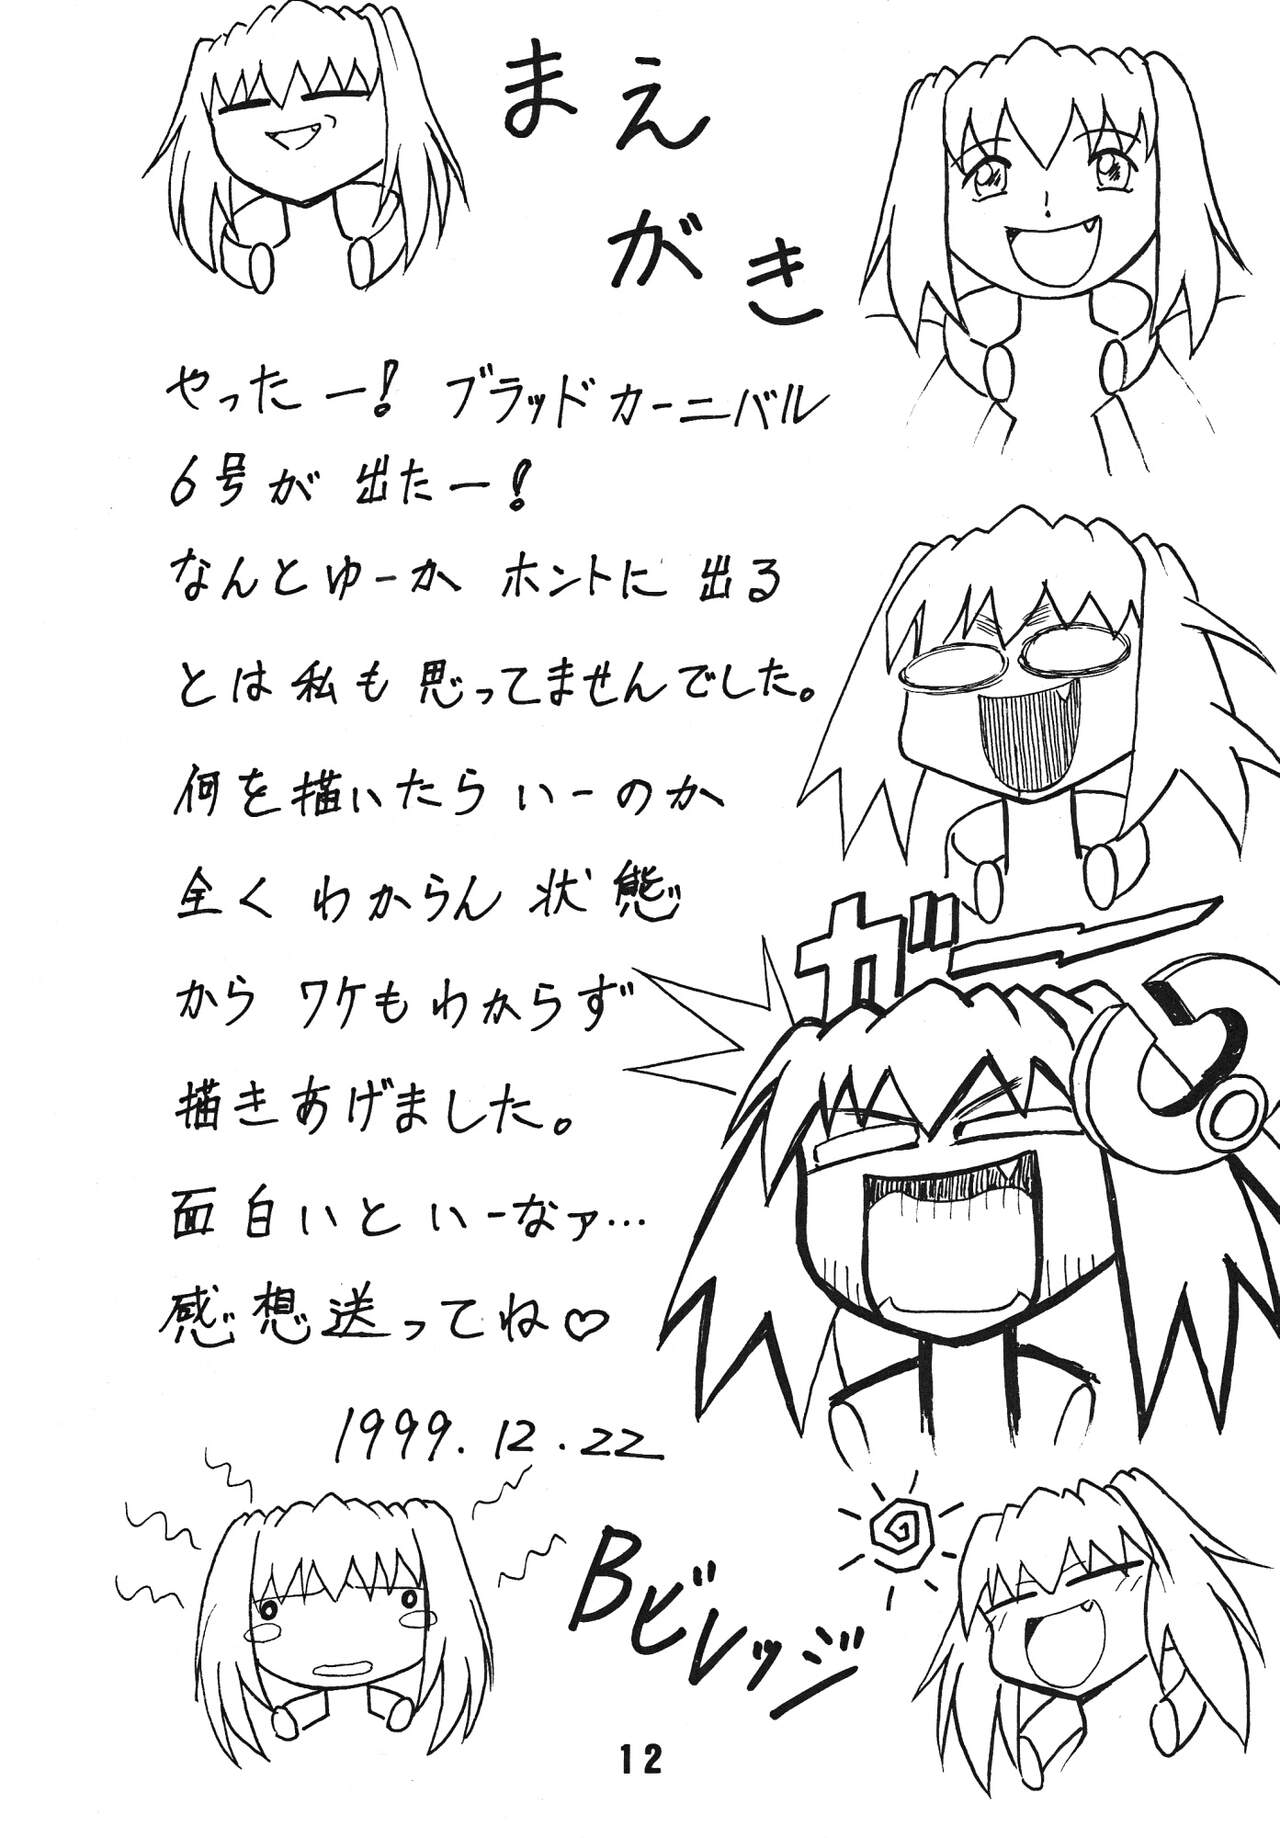 まえ
がき
やったー! ブラッドカーニバル
6号が 出たー!
なんとゆーか ホントに 出る
とは 私も 思ってませんでした。
何を描いたら いーのか
全く わからん 状態
から ワケもわからず
描きあげました。
面白いと いーなァ…
感想送ってね♡
ガーン
1999.12.22
Bビレッジ
12